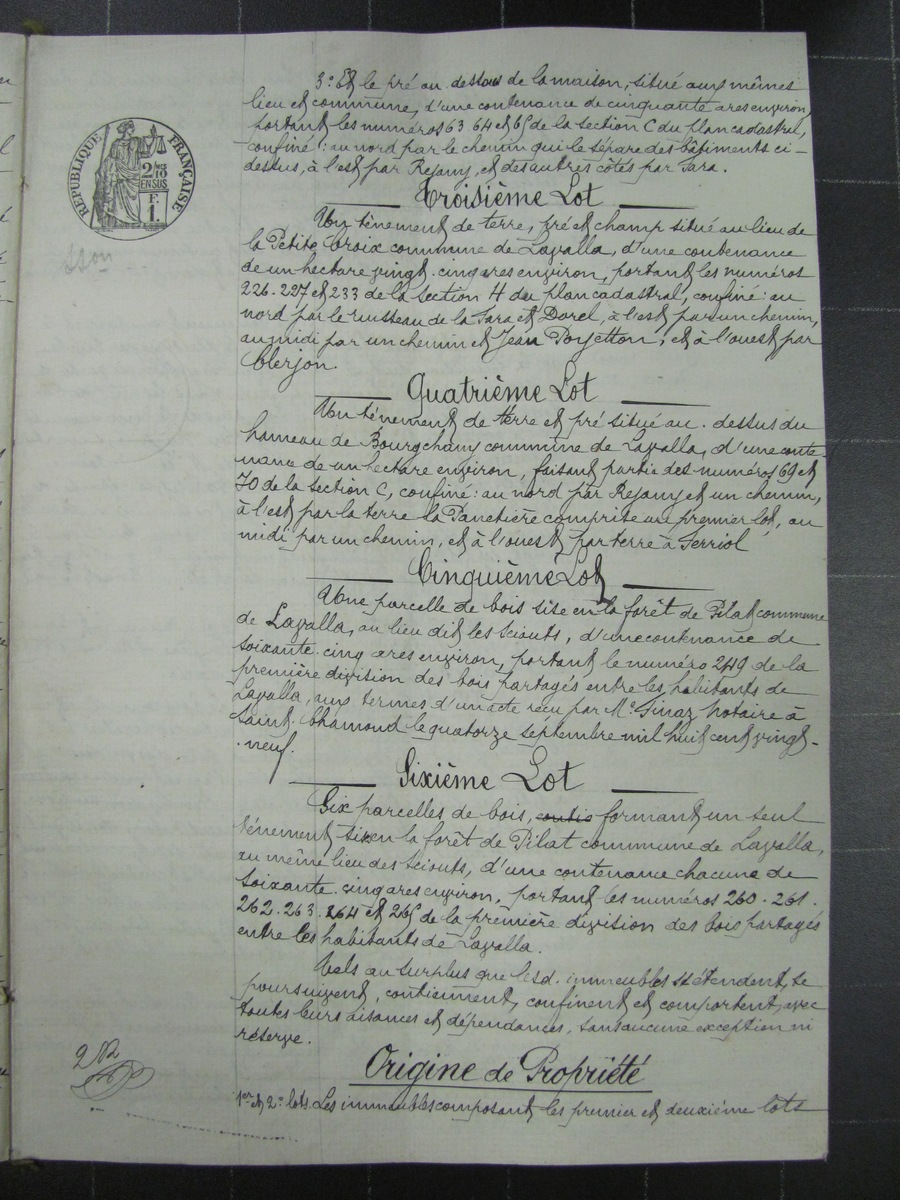 3º Et le pré au dessous de la maison, situé aux mêmes
lieu et commune, d'une contenance de cinquante ares environ,
portant les numéros 63 64 et 65 de la section C du plan cadastral,
confiné : au nord par le chemin qui le sépare des bâtiments ci-
dessus, à l'est par Rejany, et des autres côtés par Jara.
Troisième Lot
Un tènement de terre, pré et champ situé au lieu de
la Petite Croix commune de Lavalla, d'une contenance
de un hectare vingt-cinq ares environ, portant les numéros
226-227 et 233 de la section H du plan cadastral, confiné : au
nord par le ruisseau de la Jara et Dorel, à l'est par un chemin,
au midi par un chemin et Jean Poyetton, et à l'ouest par
Clerjon.
Quatrième Lot
Un ténement de terre et pré situé au-dessus du
hameau de Bourgchany commune de Lavalla, d'une conte
nance de un hectare environ, faisant partie des numéros 69 et
70 de la section C, confiné : au nord par Rejany et un chemin,
à l'est par la terre la Panetière comprise au premier lot, au
midi par un chemin, et à l'ouest par terre à Ferriol
Cinquième Lot
Une parcelle de bois sise en la forêt de Pilat commune
de Lavalla, au lieu dit les Sciouts, d'une contenance de
soixante-cinq ares environ, portant le numéro 249 de la
première division des bois partagés entre les habitants de
Lavalla, aux termes d'un acte reçu par Mº Finaz notaire à
Saint-Chamond le quatorze septembre mil huit cent vingt-
-neuf.
Sixième Lot
Six parcelles de bois, formant un seul
ténement sis en la forêt de Pilat commune de Lavalla,
au même lieu des Sciouts, d'une contenance chacune de
soixante-cinq ares environ, portant les numéros 260-261-
262-263-264 et 265 de la première division des bois partagés
entre les habitants de Lavalla.
Tels au surplus que lesd. immeubles s'étendent, se
poursuivent, contiennent, confinent et comportent, avec
toutes leurs aisances et dépendances, sans aucune exception ni
réserve.
Origine de Propriété
1er et 2º lots. Les immeubles composant les premier et deuxième lots
RÉPUBLIQUE FRANÇAISE
2/10
EN SUS
F.
1.